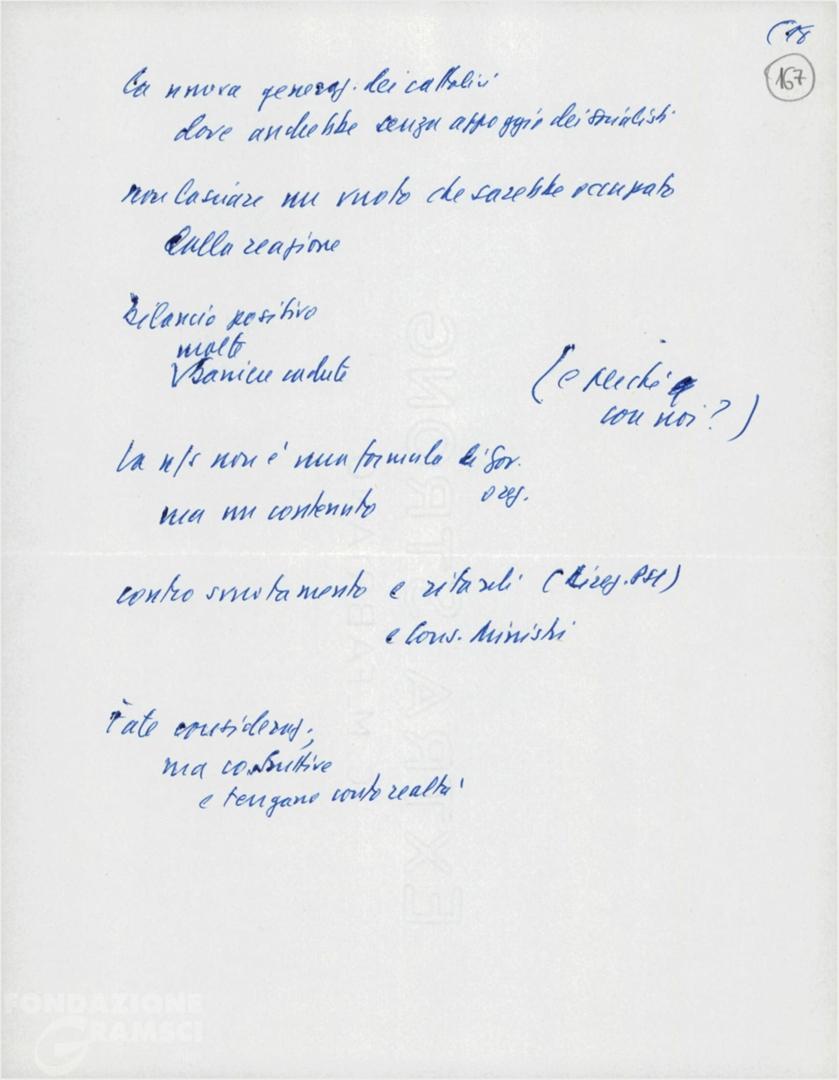 (18
167
La nuova generaz. dei cattolici
dove andrebbe senza appoggio dei socialisti
non lasciare un vuoto che sarebbe occupato
dalla reazione
Bilancio positivo
molte
barriere cadute
(e perché
con noi?)
La n/s non è una formula di Gov.
o reg.
ma un contenuto
contro svuotamento e ritardi (Direz. PSI)
e Cons. Ministri
Fate consideraz.,
ma costruttive
e tengano conto realtà
EXTRA STRONG
FONDAZIONE
GRAMSCI